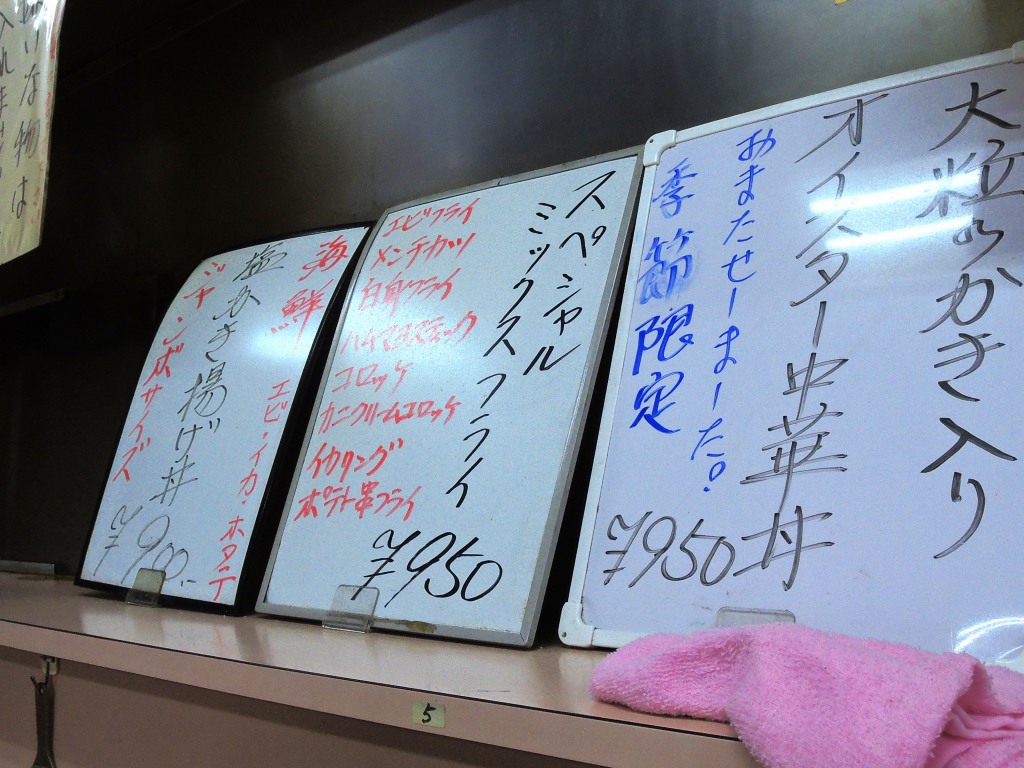 大粒のかき入り
オイスター中華丼
おまたせーまーた。
季節限定
¥950
スペシャル
ミックスフライ
エビフライ
メンチカツ
白身フライ
コロッケ
カニクリームコロッケ
イカリング
ポテト串フライ
¥950
海鮮
エビ・イカ・ホタテ
塩かき揚げ丼
ジャンボサイズ
¥900.-
な物は
入れま
5